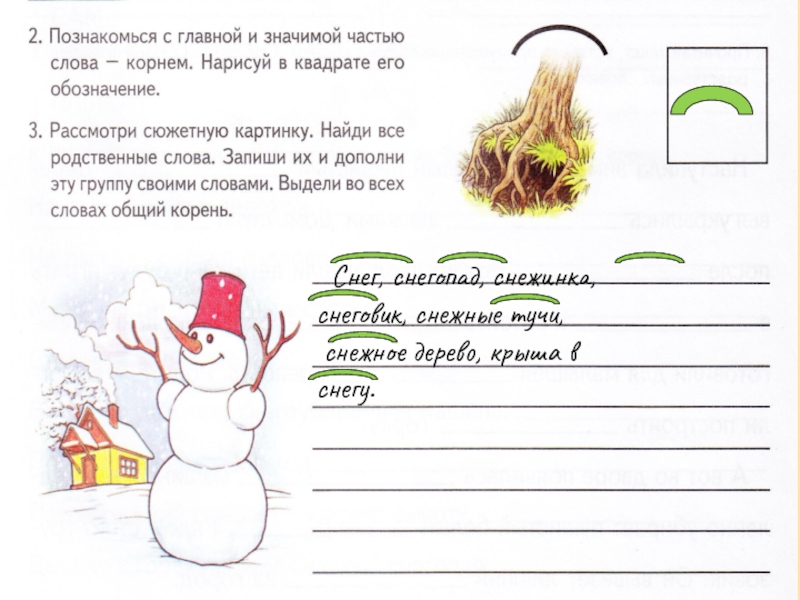 2. Познакомься с главной и значимой частью
слова – корнем. Нарисуй в квадрате его
обозначение.
3. Рассмотри сюжетную картинку. Найди все
родственные слова. Запиши их и дополни
эту группу своими словами. Выдели во всех
словах общий корень.
Снег, снегопад, снежинка,
снеговик, снежные тучи,
снежное дерево, крыша в
снегу.